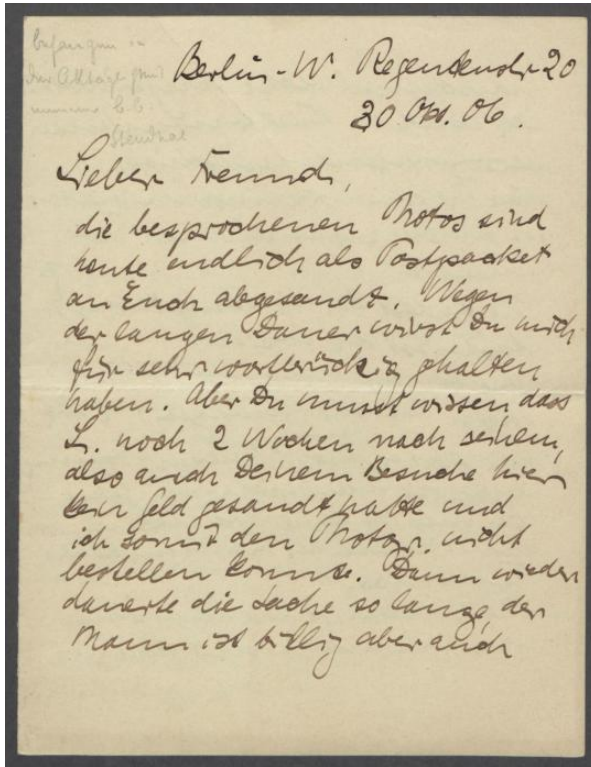 Berlin-W. Regentenstr 20
30 Okt. 06.
Lieber Freund,
die besprochenen Photos sind
heute endlich als Postpacket
an Euch abgesandt. Wegen
der langen Dauer wirst Du mich
für sehr wortbrüchig gehalten
haben. Aber Du musst wissen, dass
L. noch 2 Wochen nach seinem,
also auch Deinem Besuche hier
kein Geld gesandt hatte und
ich somit den Photogr. nicht
bestellen konnte. Dann wieder
dauerte die Sache so lange, der
Mann ist billig aber auch